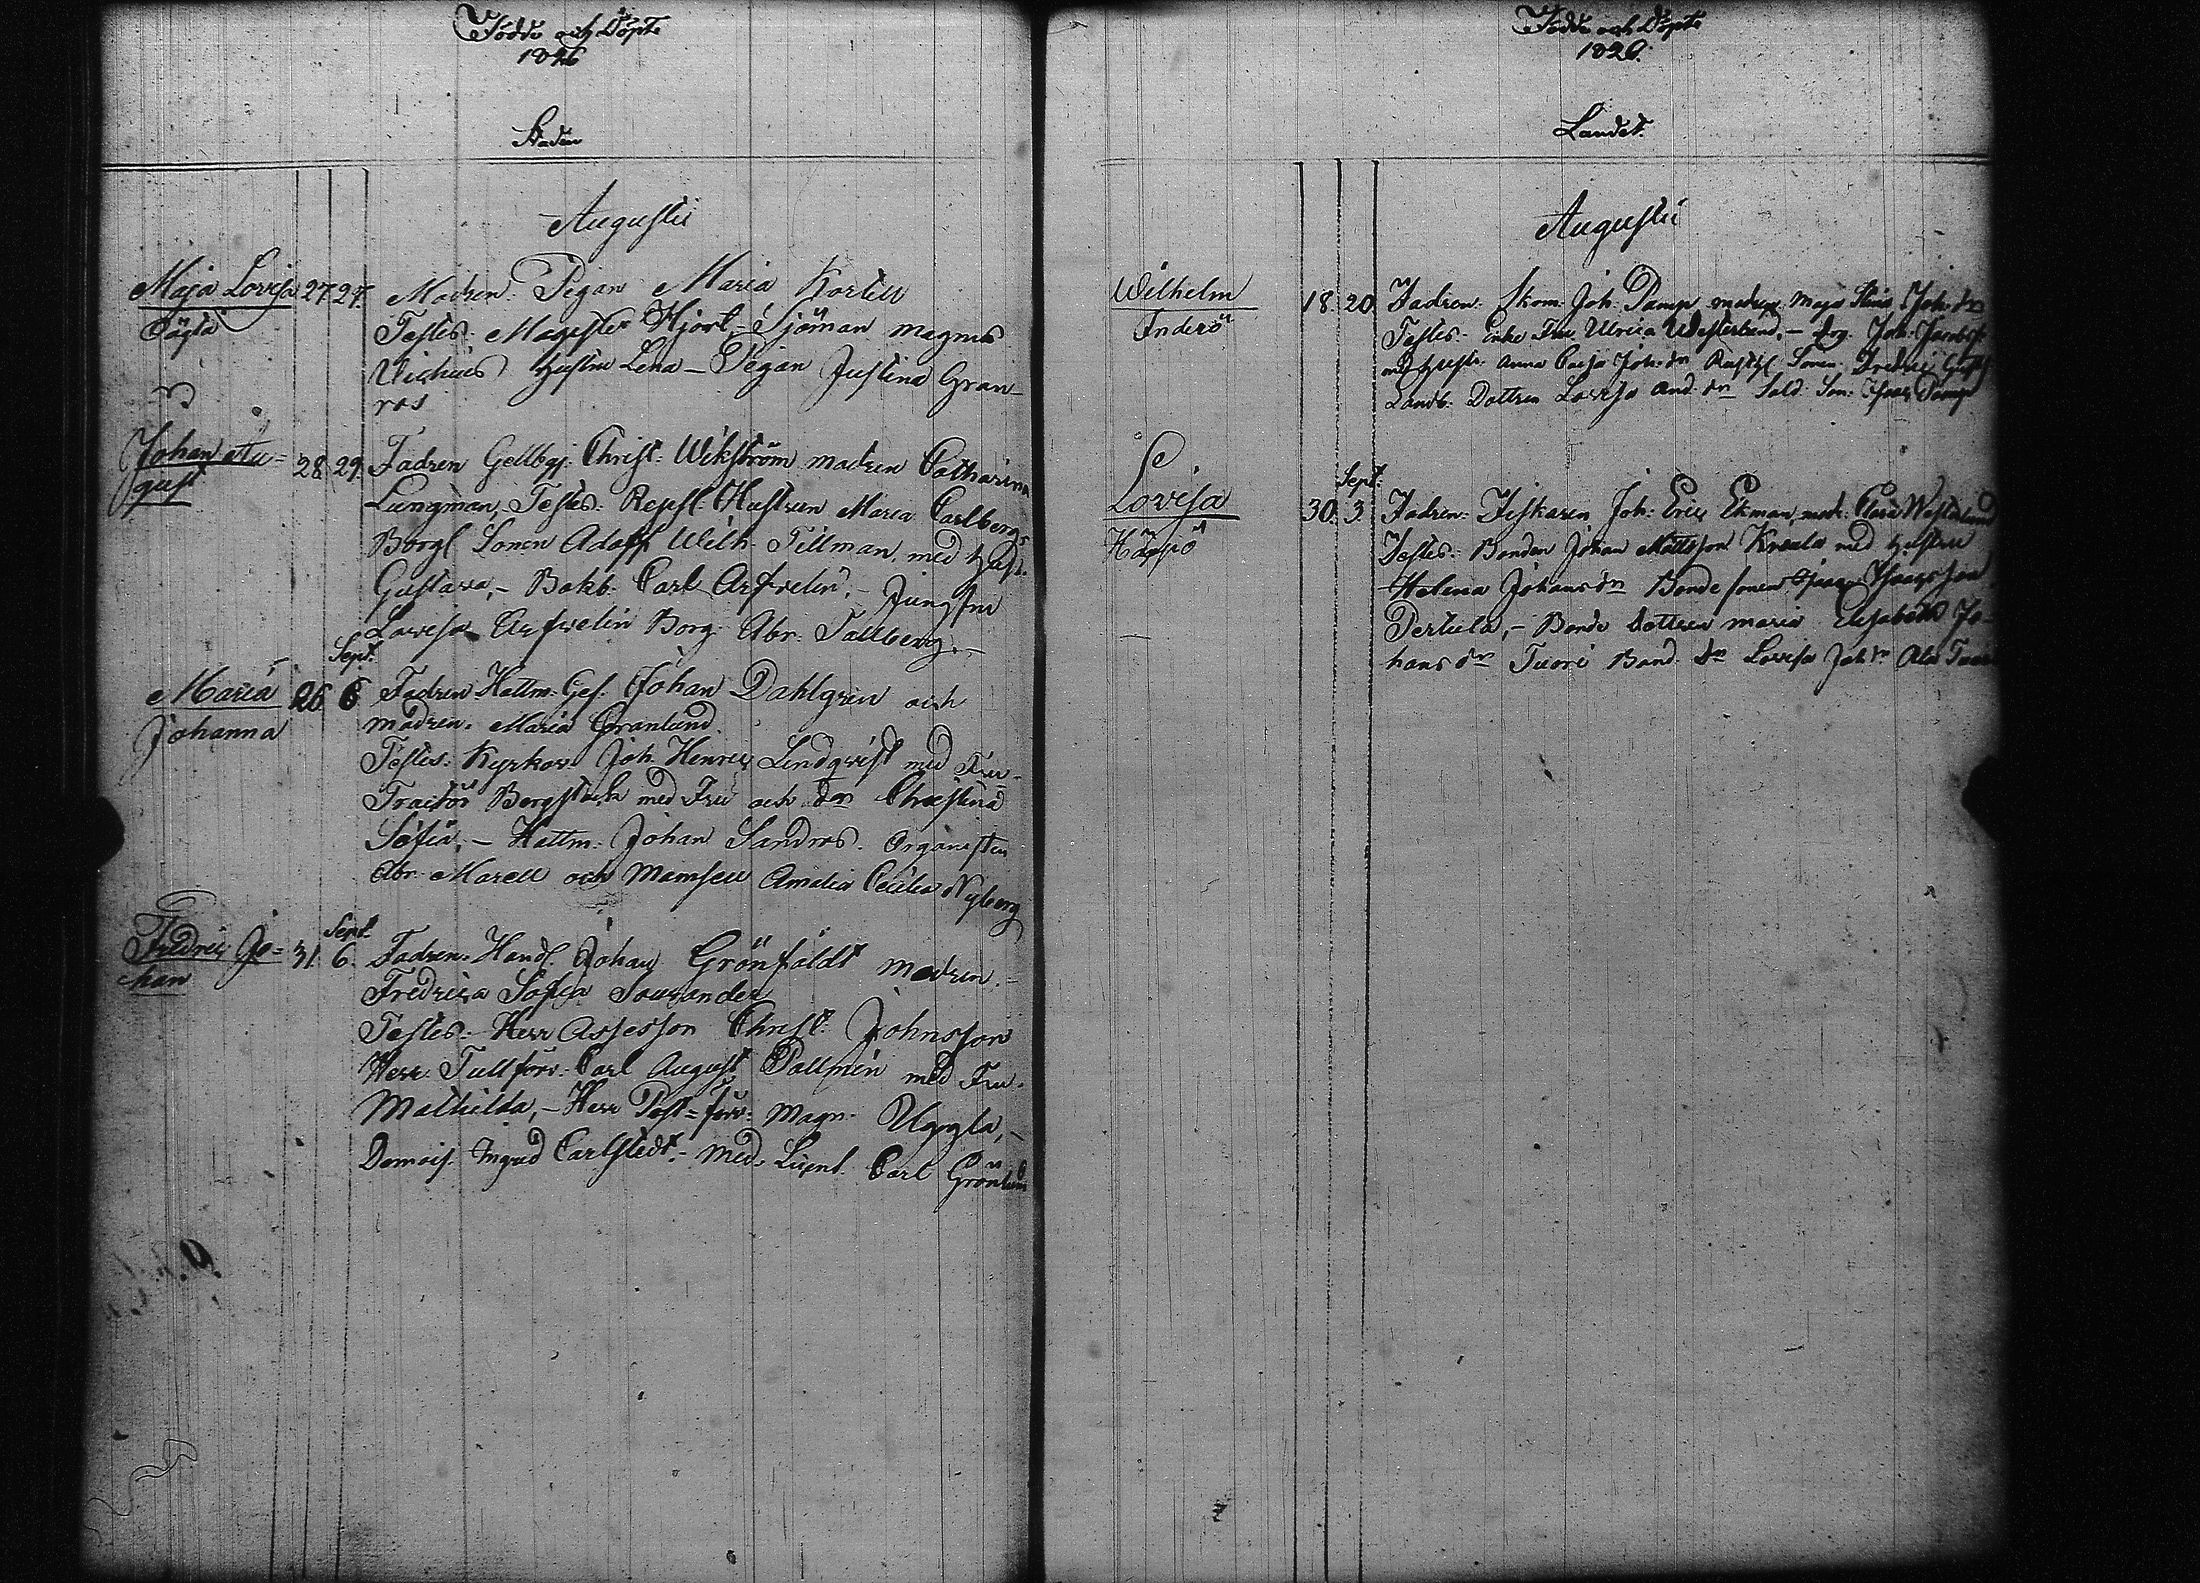 Födde och Döpte
1826
Staden
Augustii
Maja Lovisa 27. 27. Modren. Pigan Maria Kortell
Oägta
Testes. Magister Hjort, - Sjöman Magnus
Hustru Lena - Pigan Justina Gran-
ros
Johan Au- 28. 29. Fadren Gellbgj. Christ. Wikström modren Catharina
gust
Lungman, - Testes. Repsl. Hustrun Maria Carlberg,
Borgl Sonen Adolf Wilh. Tillman, med Hust.
Gustava, - Bokb. Carl Arfvelin, - Jungfru
Lovisa Arfvelin Borg. Abr. Tallberg. -
Sept.
Maria 26 6 Fadren Hattm. Ges. Johan Dahlgren och
Johanna
modren. Maria Granlund.
Testes. Kyrkov. Joh. Henric Lindqvist med Fru -
Tracteur med Fru och dn Christina
Sofia, - Hattm. Johan Sandros. Organisten
Abr. Marell och Mamsell Amalia Cecilia Nyberg
Sept.
Fredric Jo- 31. 6. Fadren. Handl. Johan Grönfäldt modren. -
han
Fredrica Sofia Sourander
Testes. - Herr Assessor Christ. Johnsson
Herr Tullförv. Carl August Pallmén med Fru.
Mathilda, - Herr Post-förv. Magn. Uggla, -
Demois. Ingrid Carlstedt. - Med. Licent. Carl Grönlund
Födde och Döpte
1826.
Landet.
Augustii
Wilhelm 18. 20. Fadren. Skom. Joh. Pamp modren Maja Stina Joh. dr
Inderö
Testes. Enke Fru Ulrica Westerlund, - drg. Joh. Jacobss.
med hustr. Anna Caisa Joh. dr Sonen Fredric
Landb. Dottren Lovisa And. dr Sold. Son. Isac Pamp
Sept.
Lovisa 30. 3. Fadren. Fiskaren Joh. Eric Ekman, modr. Clara Westerlund
Hägsjö
Testes. Bonden Johan Mattsson Knuula med hustru
Helena Johansdr Bonde sonen Isaac Isaacsson
Pertula, - Bonde Dottren Maria Elisabeth Jo-
hans dr Tuori Bond. dr Lovisa Joh. dr Ala Tuori